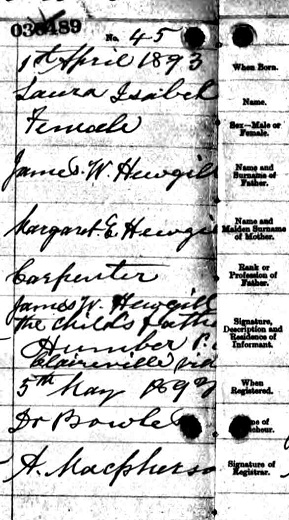 036489
No. 45
1st April 1893
When Born.
Laura Isabel
Name.
Female
Sex—Male or
Female.
James. W. Hewgill
Name and
Surname of
Father.
Margaret E. Hewgi
Name and
Maiden Surname
of Mother.
Carpenter
Rank or
Profession of
Father.
James W. Hewgill
the child's fath
Humber P.
Claireville
Signature,
Description and
Residence of
Informant.
5th May 1893
When
Registered.
Dr Bowle
e of
cheur.
A. Macpherso
Signature of
Registrar.